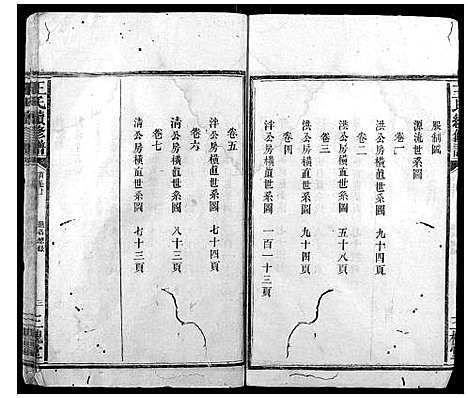 王氏續修譜
服制圖
源流世系圖
卷一
洪公房橫直世系圖 九十四頁
卷二
洪公房橫直世系圖 五十八頁
卷三
泮公房橫直世系圖 九十四頁
卷四
泮公房橫直世系圖 一百一十三頁
卷五
泮公房橫直世系圖 七十四頁
卷六
清公房橫直世系圖 八十三頁
卷七
清公房橫直世系圖 七十三頁
王氏續修譜
三槐堂